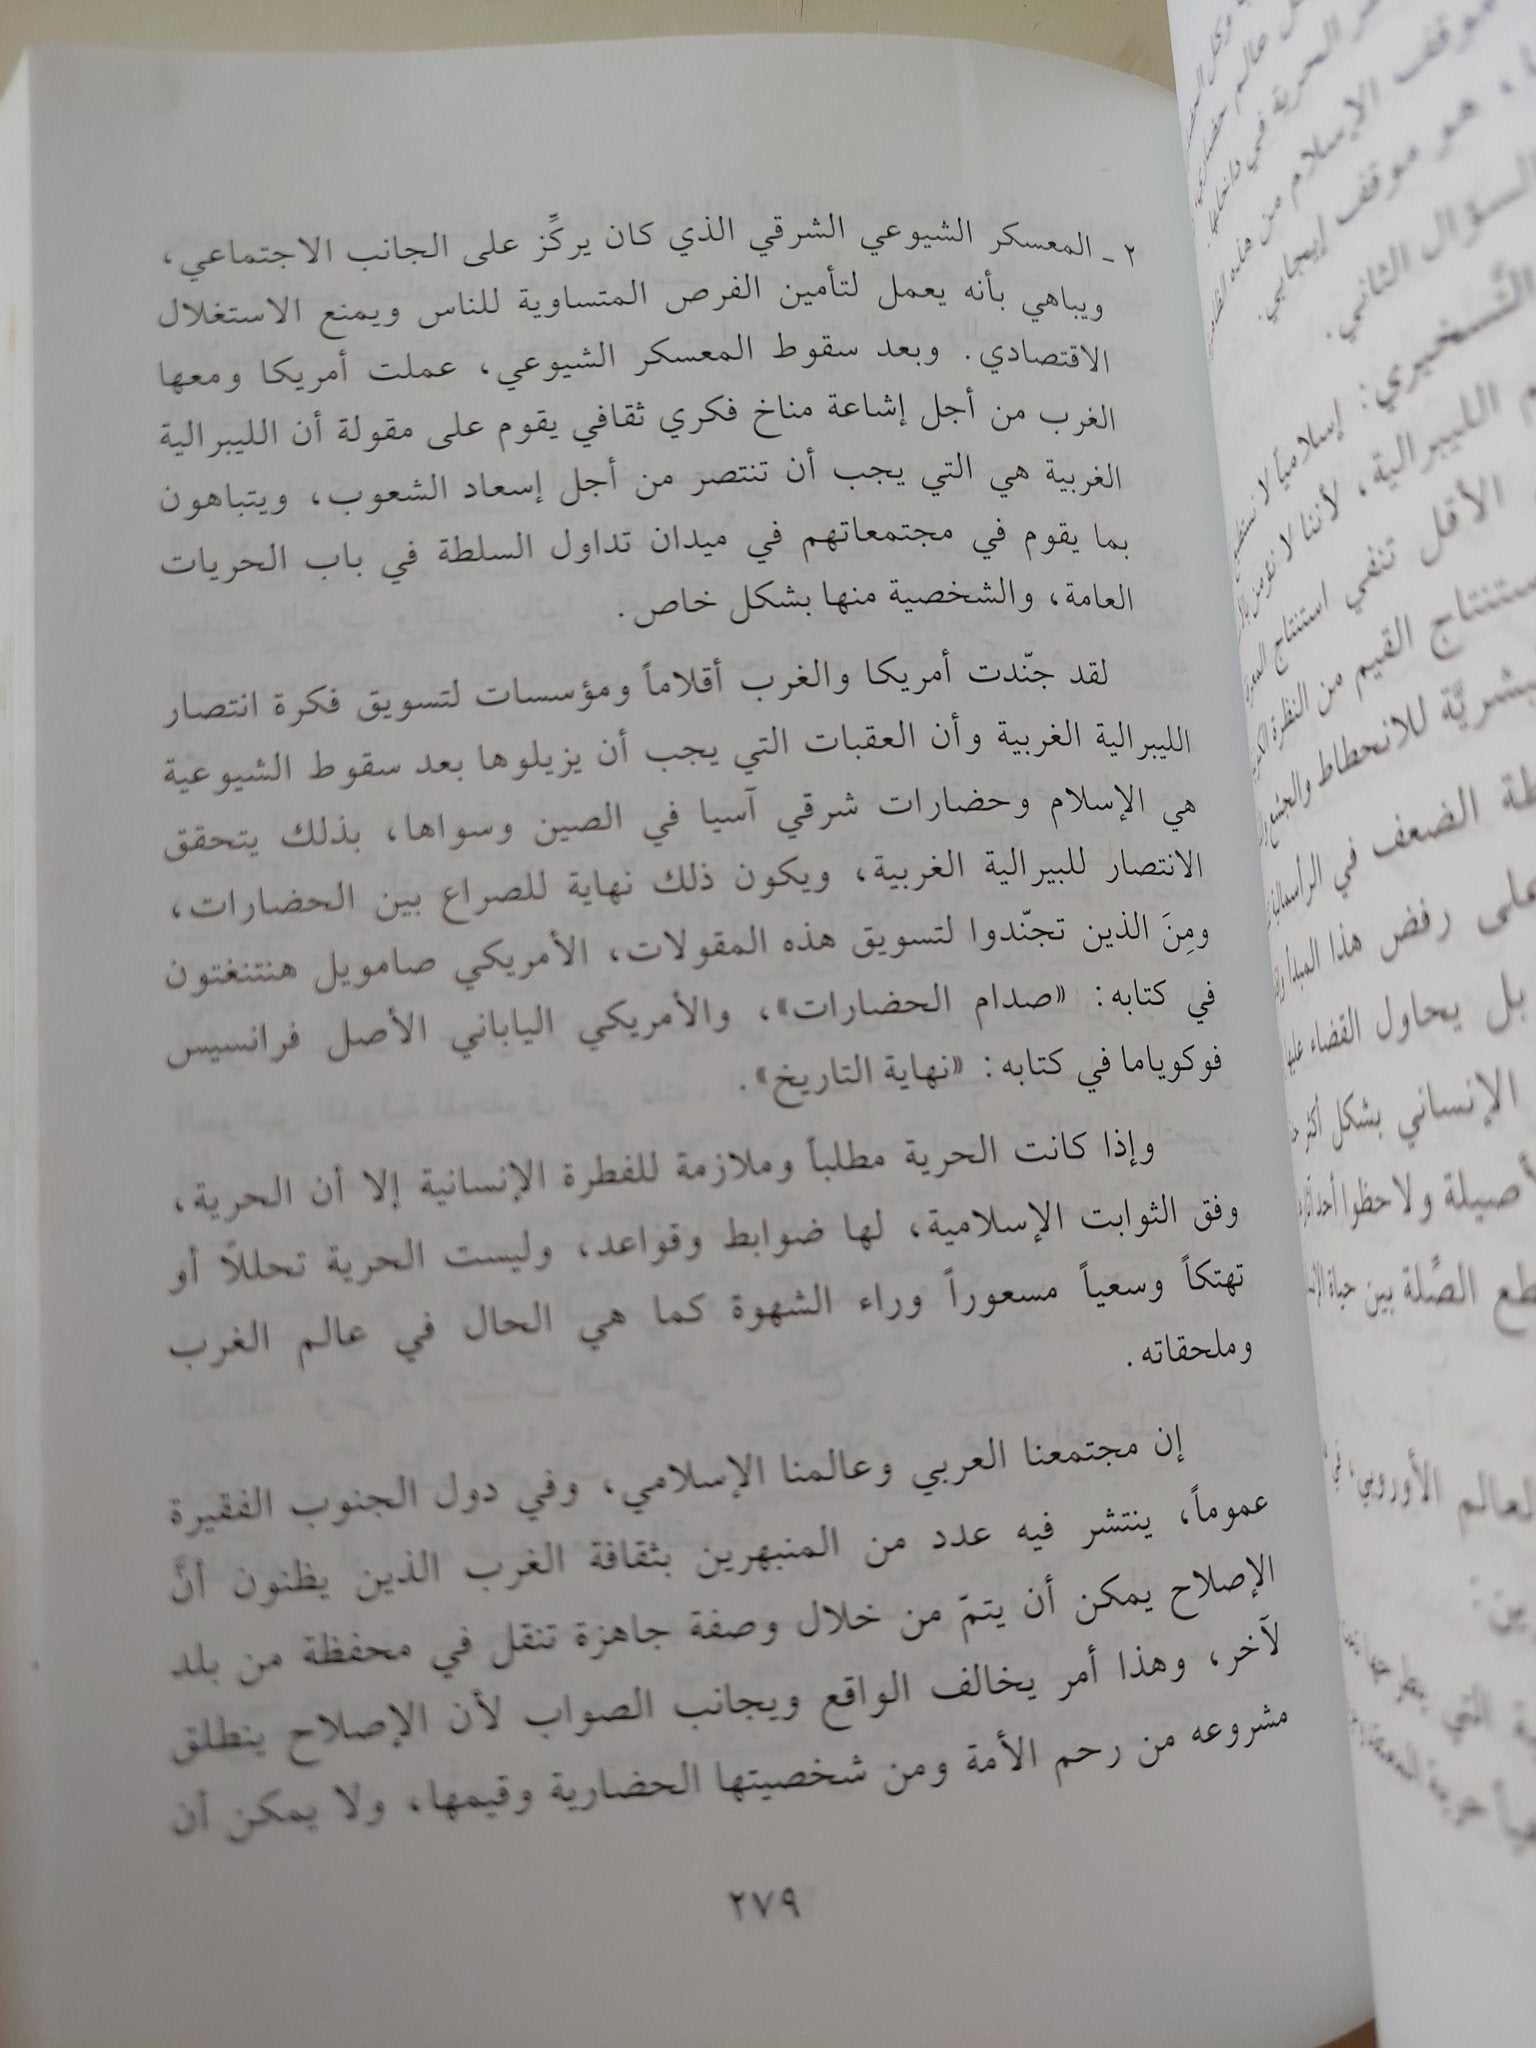 ٢ ـ المعسكر الشيوعي الشرقي الذي كان يركِّز على الجانب الاجتماعي،
ويباهي بأنه يعمل لتأمين الفرص المتساوية للناس ويمنع الاستغلال
الاقتصادي. وبعد سقوط المعسكر الشيوعي، عملت أمريكا ومعها
الغرب من أجل إشاعة مناخ فكري ثقافي يقوم على مقولة أن الليبرالية
الغربية هي التي يجب أن تنتصر من أجل إسعاد الشعوب، ويتباهون
بما يقوم في مجتمعاتهم في ميدان تداول السلطة في باب الحريات
العامة، والشخصية منها بشكل خاص.
لقد جنّدت أمريكا والغرب أقلاماً ومؤسسات لتسويق فكرة انتصار
الليبرالية الغربية وأن العقبات التي يجب أن يزيلوها بعد سقوط الشيوعية
هي الإسلام وحضارات شرقي آسيا في الصين وسواها، بذلك يتحقق
الانتصار للبيرالية الغربية، ويكون ذلك نهاية للصراع بين الحضارات،
ومِنَ الذين تجنّدوا لتسويق هذه المقولات، الأمريكي صامويل هنتنغتون
في كتابه: «صدام الحضارات»، والأمريكي الياباني الأصل فرانسيس
فوكوياما في كتابه: «نهاية التاريخ».
وإذا كانت الحرية مطلباً وملازمة للفطرة الإنسانية إلا أن الحرية،
وفق الثوابت الإسلامية، لها ضوابط وقواعد، وليست الحرية تحللاً أو
تهتكاً وسعياً مسعوراً وراء الشهوة كما هي الحال في عالم الغرب
وملحقاته.
إن مجتمعنا العربي وعالمنا الإسلامي، وفي دول الجنوب الفقيرة
عموماً، ينتشر فيه عدد من المنبهرين بثقافة الغرب الذين يظنون أنَّ
الإصلاح يمكن أن يتمّ من خلال وصفة جاهزة تنقل في محفظة من بلد
لآخر، وهذا أمر يخالف الواقع ويجانب الصواب لأن الإصلاح ينطلق
مشروعه من رحم الأمة ومن شخصيتها الحضارية وقيمها، ولا يمكن أن
٢٧٩
موقف الإسلام من هذه
هو موقف إيجابي.
السؤال الثاني.
التَّسخيري: إسلامياً لا نستطيع
الليبرالية، لأننا لا نؤمن
الأقل تنفي استنتاج
القيم من النظرة
للانحطاط والجشع
الضعف في الرأسمالية
رفض هذا المبدأ
بل يحاول القضاء عليها
الإنساني بشكل أكثر
ولاحظوا أحد
الصِّلة بين حياة
الأوروبي، في
التي
حرية